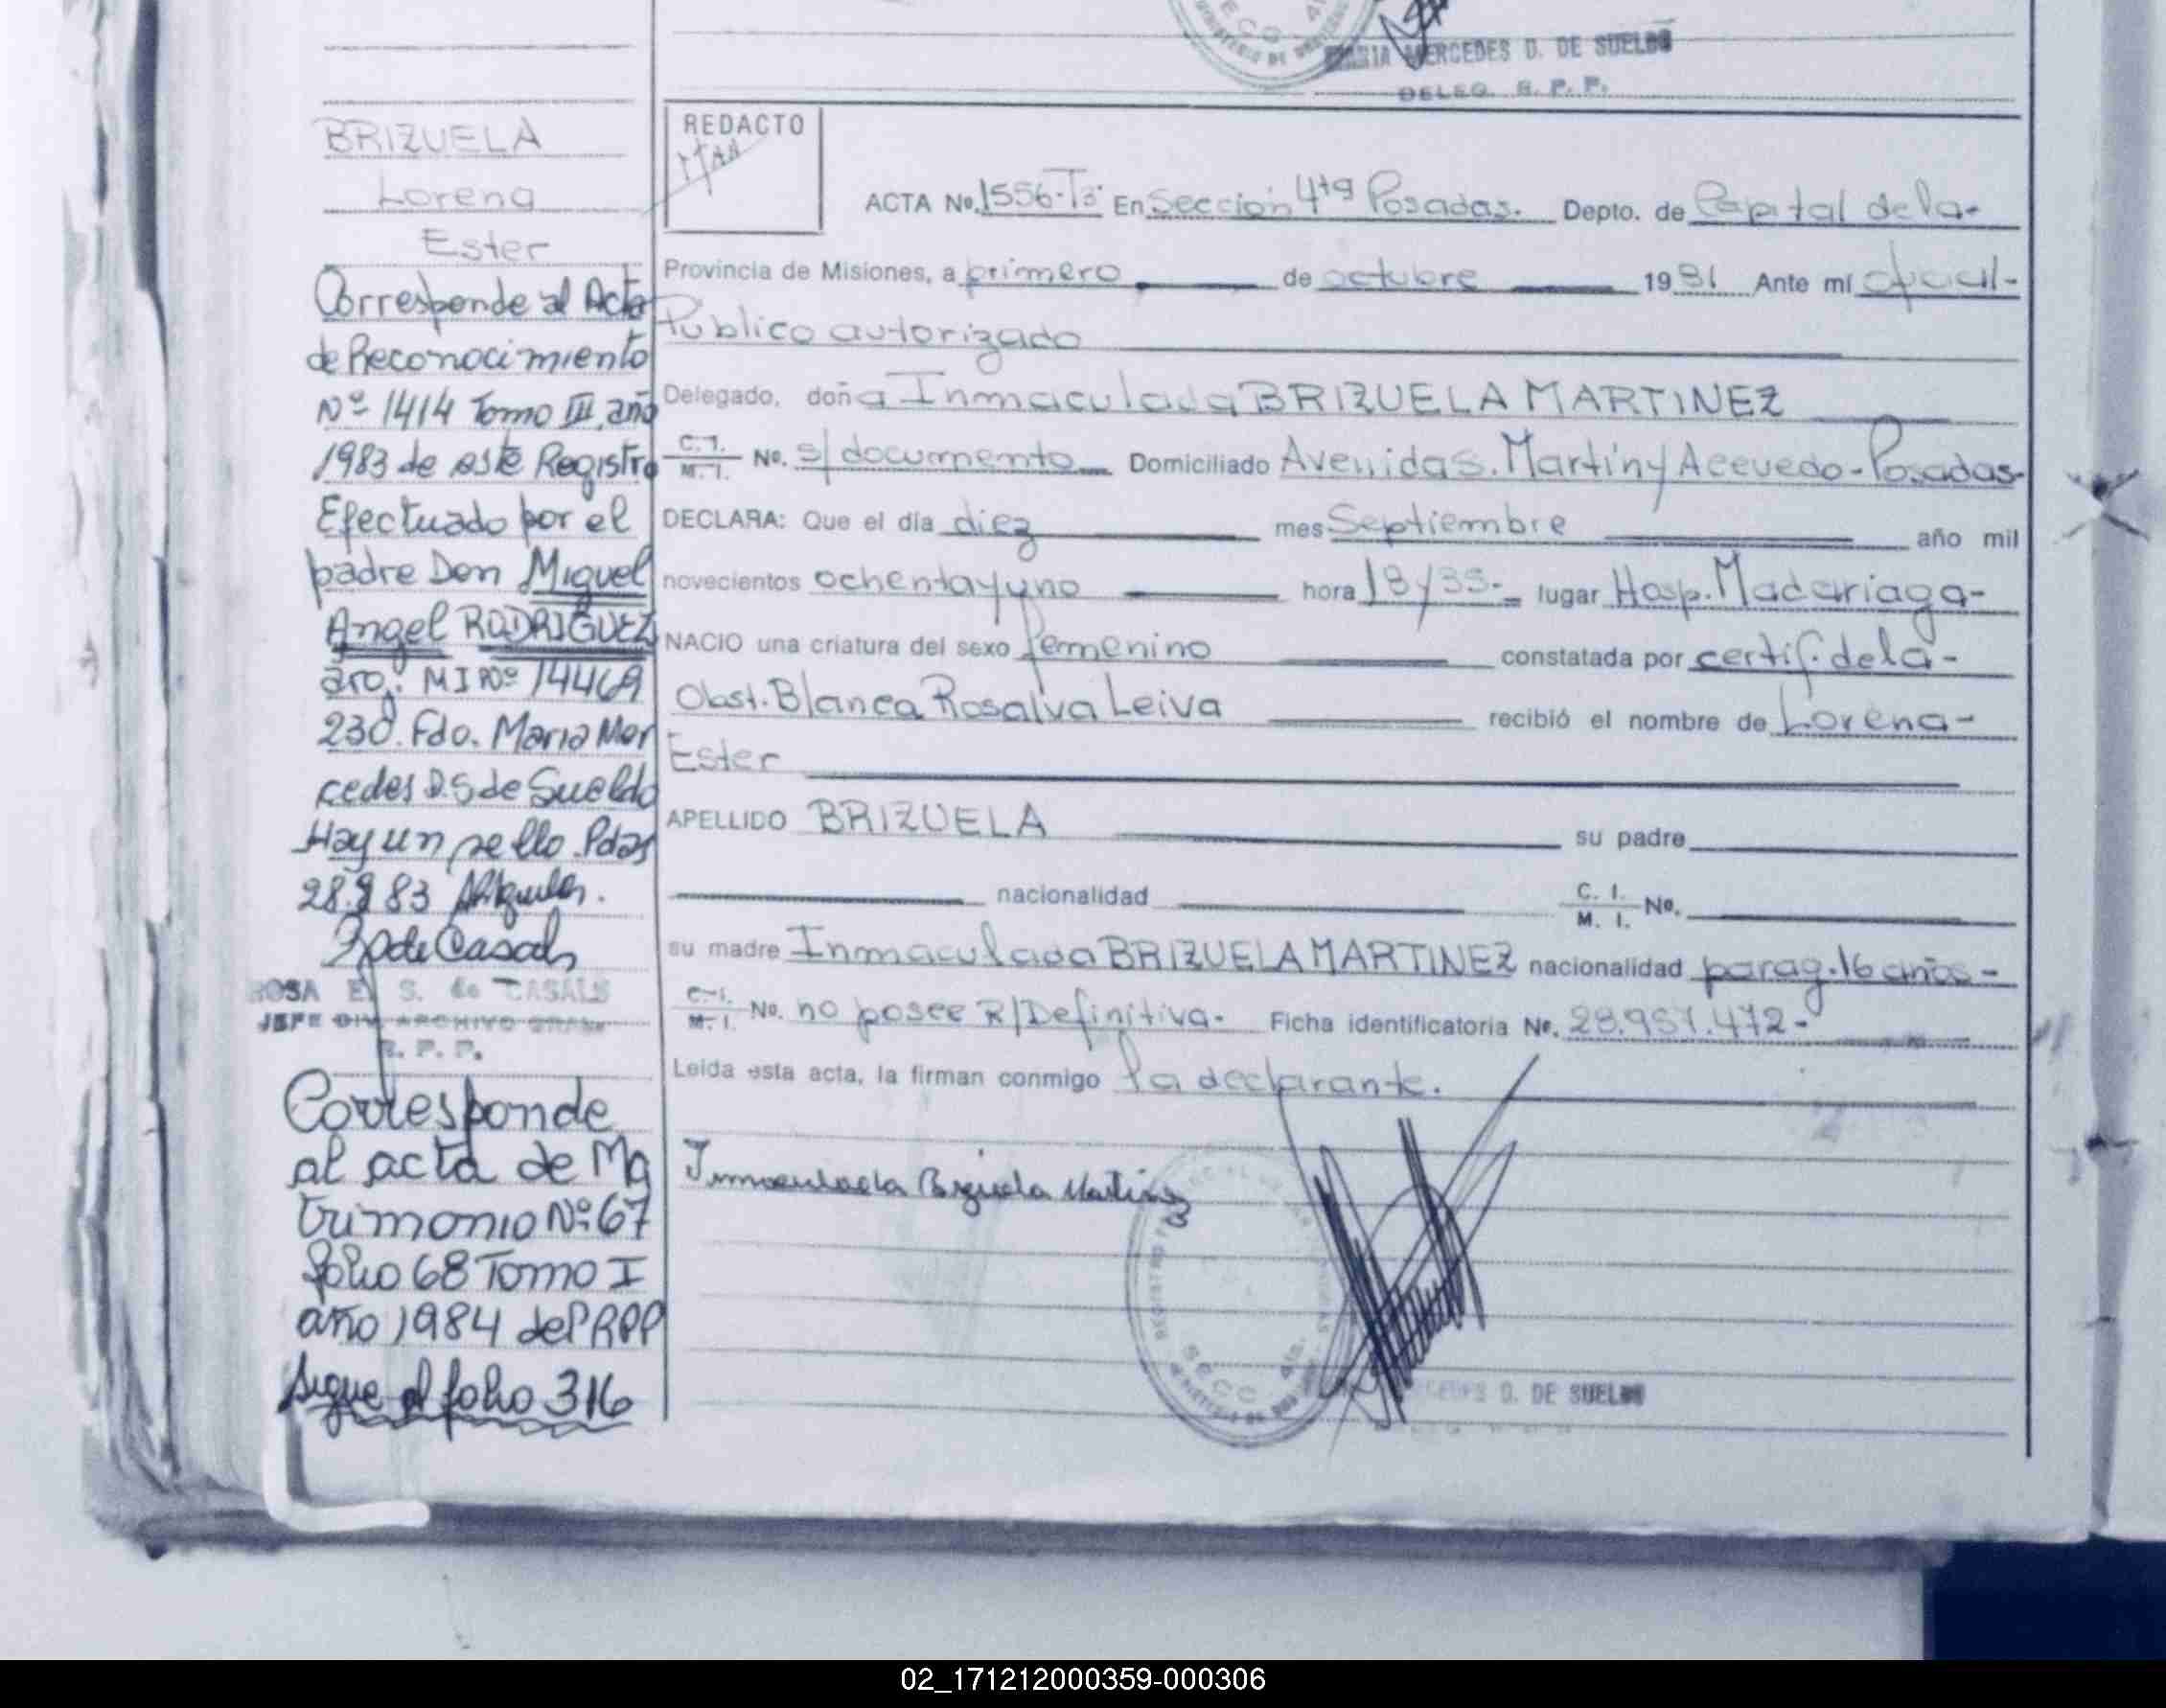 MARIA MERCEDES D. DE SUELDO
DELEG. R. P. P.
BRIZUELA
Lorena
Ester
Corresponde al Acta
de Reconocimiento
Nº 1414 Tomo III, año
1983 de este Registro
Efectuado por el
padre Don Miguel
Angel RODRIGUEZ
arg. MI Nº 14469
230. Fdo. Maria Mer
cedes D.S de Sueldo
Hay un sello. Pdas
28.9 83
de Casals
ROSA E. S. de CASALS
JEFE DIV. ARCHIVO GRAL
R. P. P.
Corresponde
al acta de Ma
trimonio Nº 67
folio 68 Tomo I
año 1984 del RPP
Sigue al folio 316
REDACTO
ACTA Nº. 1556-Tº3· En Sección 4ta Posadas. Depto. de Capital de la-
Provincia de Misiones, a primero de octubre 1981 Ante mí oficial-
Público autorizado
Delegado, doña Inmaculada BRIZUELA MARTINEZ
C.I. M.I. Nº. s/documento Domiciliado Avenida S. Martin y Acevedo-Posadas-
DECLARA: Que el día diez mes Septiembre año mil
novecientos ochenta y uno hora 18y35- lugar Hosp. Madariaga-
NACIO una criatura del sexo femenino constatada por certif. de la-
Obst. Blanca Rosalva Leiva recibió el nombre de Lorena-
Ester
APELLIDO BRIZUELA su padre
nacionalidad C. I. M. I. Nº.
su madre Inmaculada BRIZUELA MARTINEZ nacionalidad parag. 16 años-
C.I. M.I. Nº. no posee R/Definitiva. Ficha identificatoria Nº. 28.951.472-
Leida esta acta, la firman conmigo la declarante.
Inmaculada Brizuela Martinez
SECC 4ta.
CEDES D. DE SUELDO
02_171212000359-000306